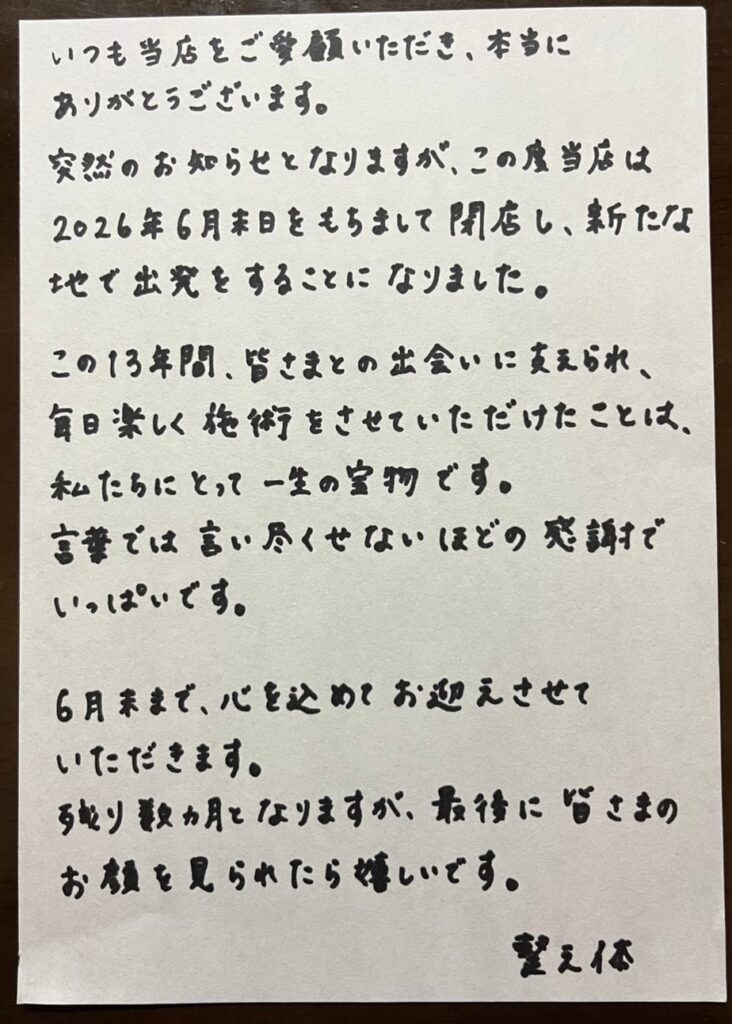 いつも当店をご愛顧いただき、本当に
ありがとうございます。
突然のお知らせとなりますが、この度当店は
2026年6月末日をもちまして閉店し、新たな
地で出発をすることになりました。
この13年間、皆さまとの出会いに支えられ、
毎日楽しく施術をさせていただけたことは、
私たちにとって一生の宝物です。
言葉では言い尽くせないほどの感謝で
いっぱいです。
6月末まで、心を込めてお迎えさせて
いただきます。
残り数ヵ月となりますが、最後に皆さまの
お顔を見られたら嬉しいです。
整え体